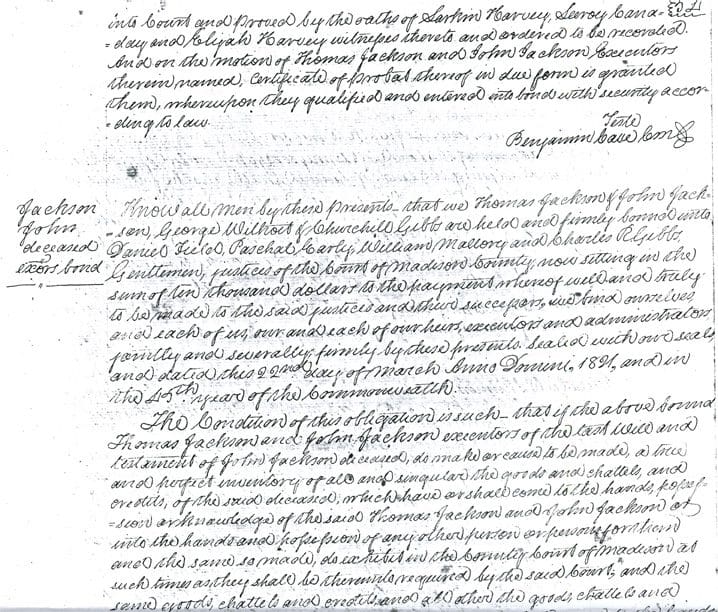 into Court and proved by the oaths of Larkin Harvey, Leroy Cana=
=day and Elijah Harvey witnesses thereto and ordered to be recorded.
And on the motion of Thomas Jackson and John Jackson Executors
therein named, Certificate of probat thereof in due form is granted
them, whereupon they qualified and entered into bond with security accor=
=ding to law.
Teste
Benjamin Cave
Jackson
John
deceased
excors bond
Know all men by these presents that we Thomas Jackson & John Jack-
=son, George Wilhoit & Churchill Gibbs are held and firmly bound unto
Daniel Field, Paschal Early, William Mallory and Charles P. Gibbs,
Gentlemen, justices of the Court of Madison County, now setting in the
sum of ten thousand dollars to the payment whereof well and truly
to be made to the said justices and their successors, we bind ourselves
and each of us, our and each of our heirs, executors and administrators
jointly and severally firmly by these presents. Sealed with our seals
and dated this 22nd day of March Anno Domini, 1821, and in
the 45th year of the Commonwealth.
The Condition of this obligation is such that if the above bound
Thomas Jackson and John Jackson executors of the last Will and
testament of John Jackson deceased, do make or cause to be made, a true
and perfect inventory of all and singular the goods and chattels, and
credits, of the said deceased, which have or shall come to the hands, posses=
=sion or knowledge of the said Thomas Jackson and John Jackson or
into the hands and possession of any other person or persons for them
and the same so made, do exhibit in the County Court of Madison at
such times as they shall be thereunto required by the said Court, and the
same goods, chattels and credits and all other the goods, chattels and